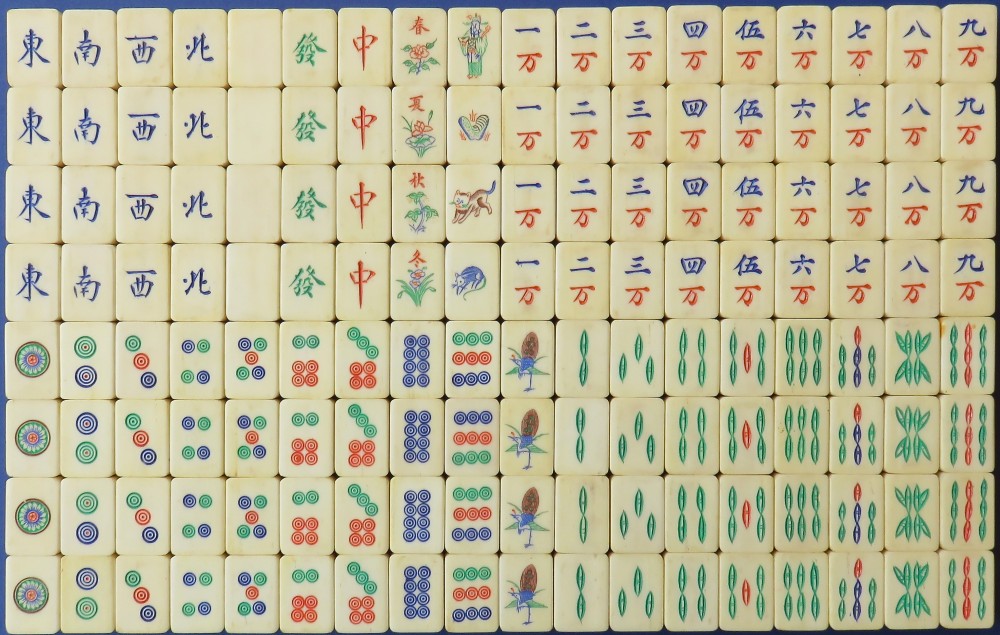 東 南 西 北 發 中 春 一万 二万 三万 四万 伍万 六万 七万 八万 九万
東 南 西 北 發 中 夏 一万 二万 三万 四万 伍万 六万 七万 八万 九万
東 南 西 北 發 中 秋 一万 二万 三万 四万 伍万 六万 七万 八万 九万
東 南 西 北 發 中 冬 一万 二万 三万 四万 伍万 六万 七万 八万 九万